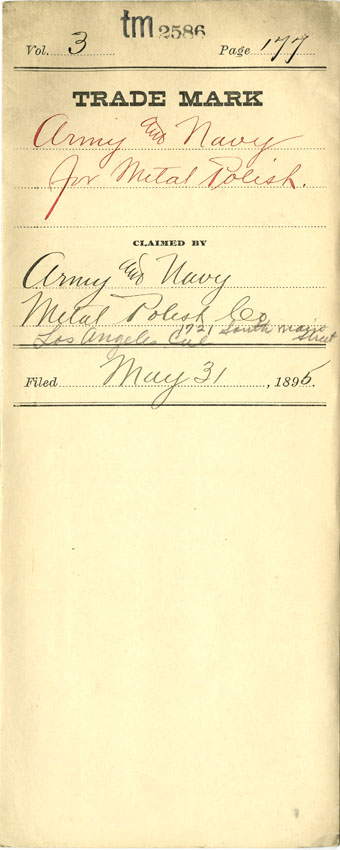 tm 2586
Vol. 3 Page 177
TRADE MARK
Army and Navy
for Metal Polish.
CLAIMED BY
Army and Navy
Metal Polish Co
Los Angeles Cal 1721 South Main Street
Filed May 31, 1895.